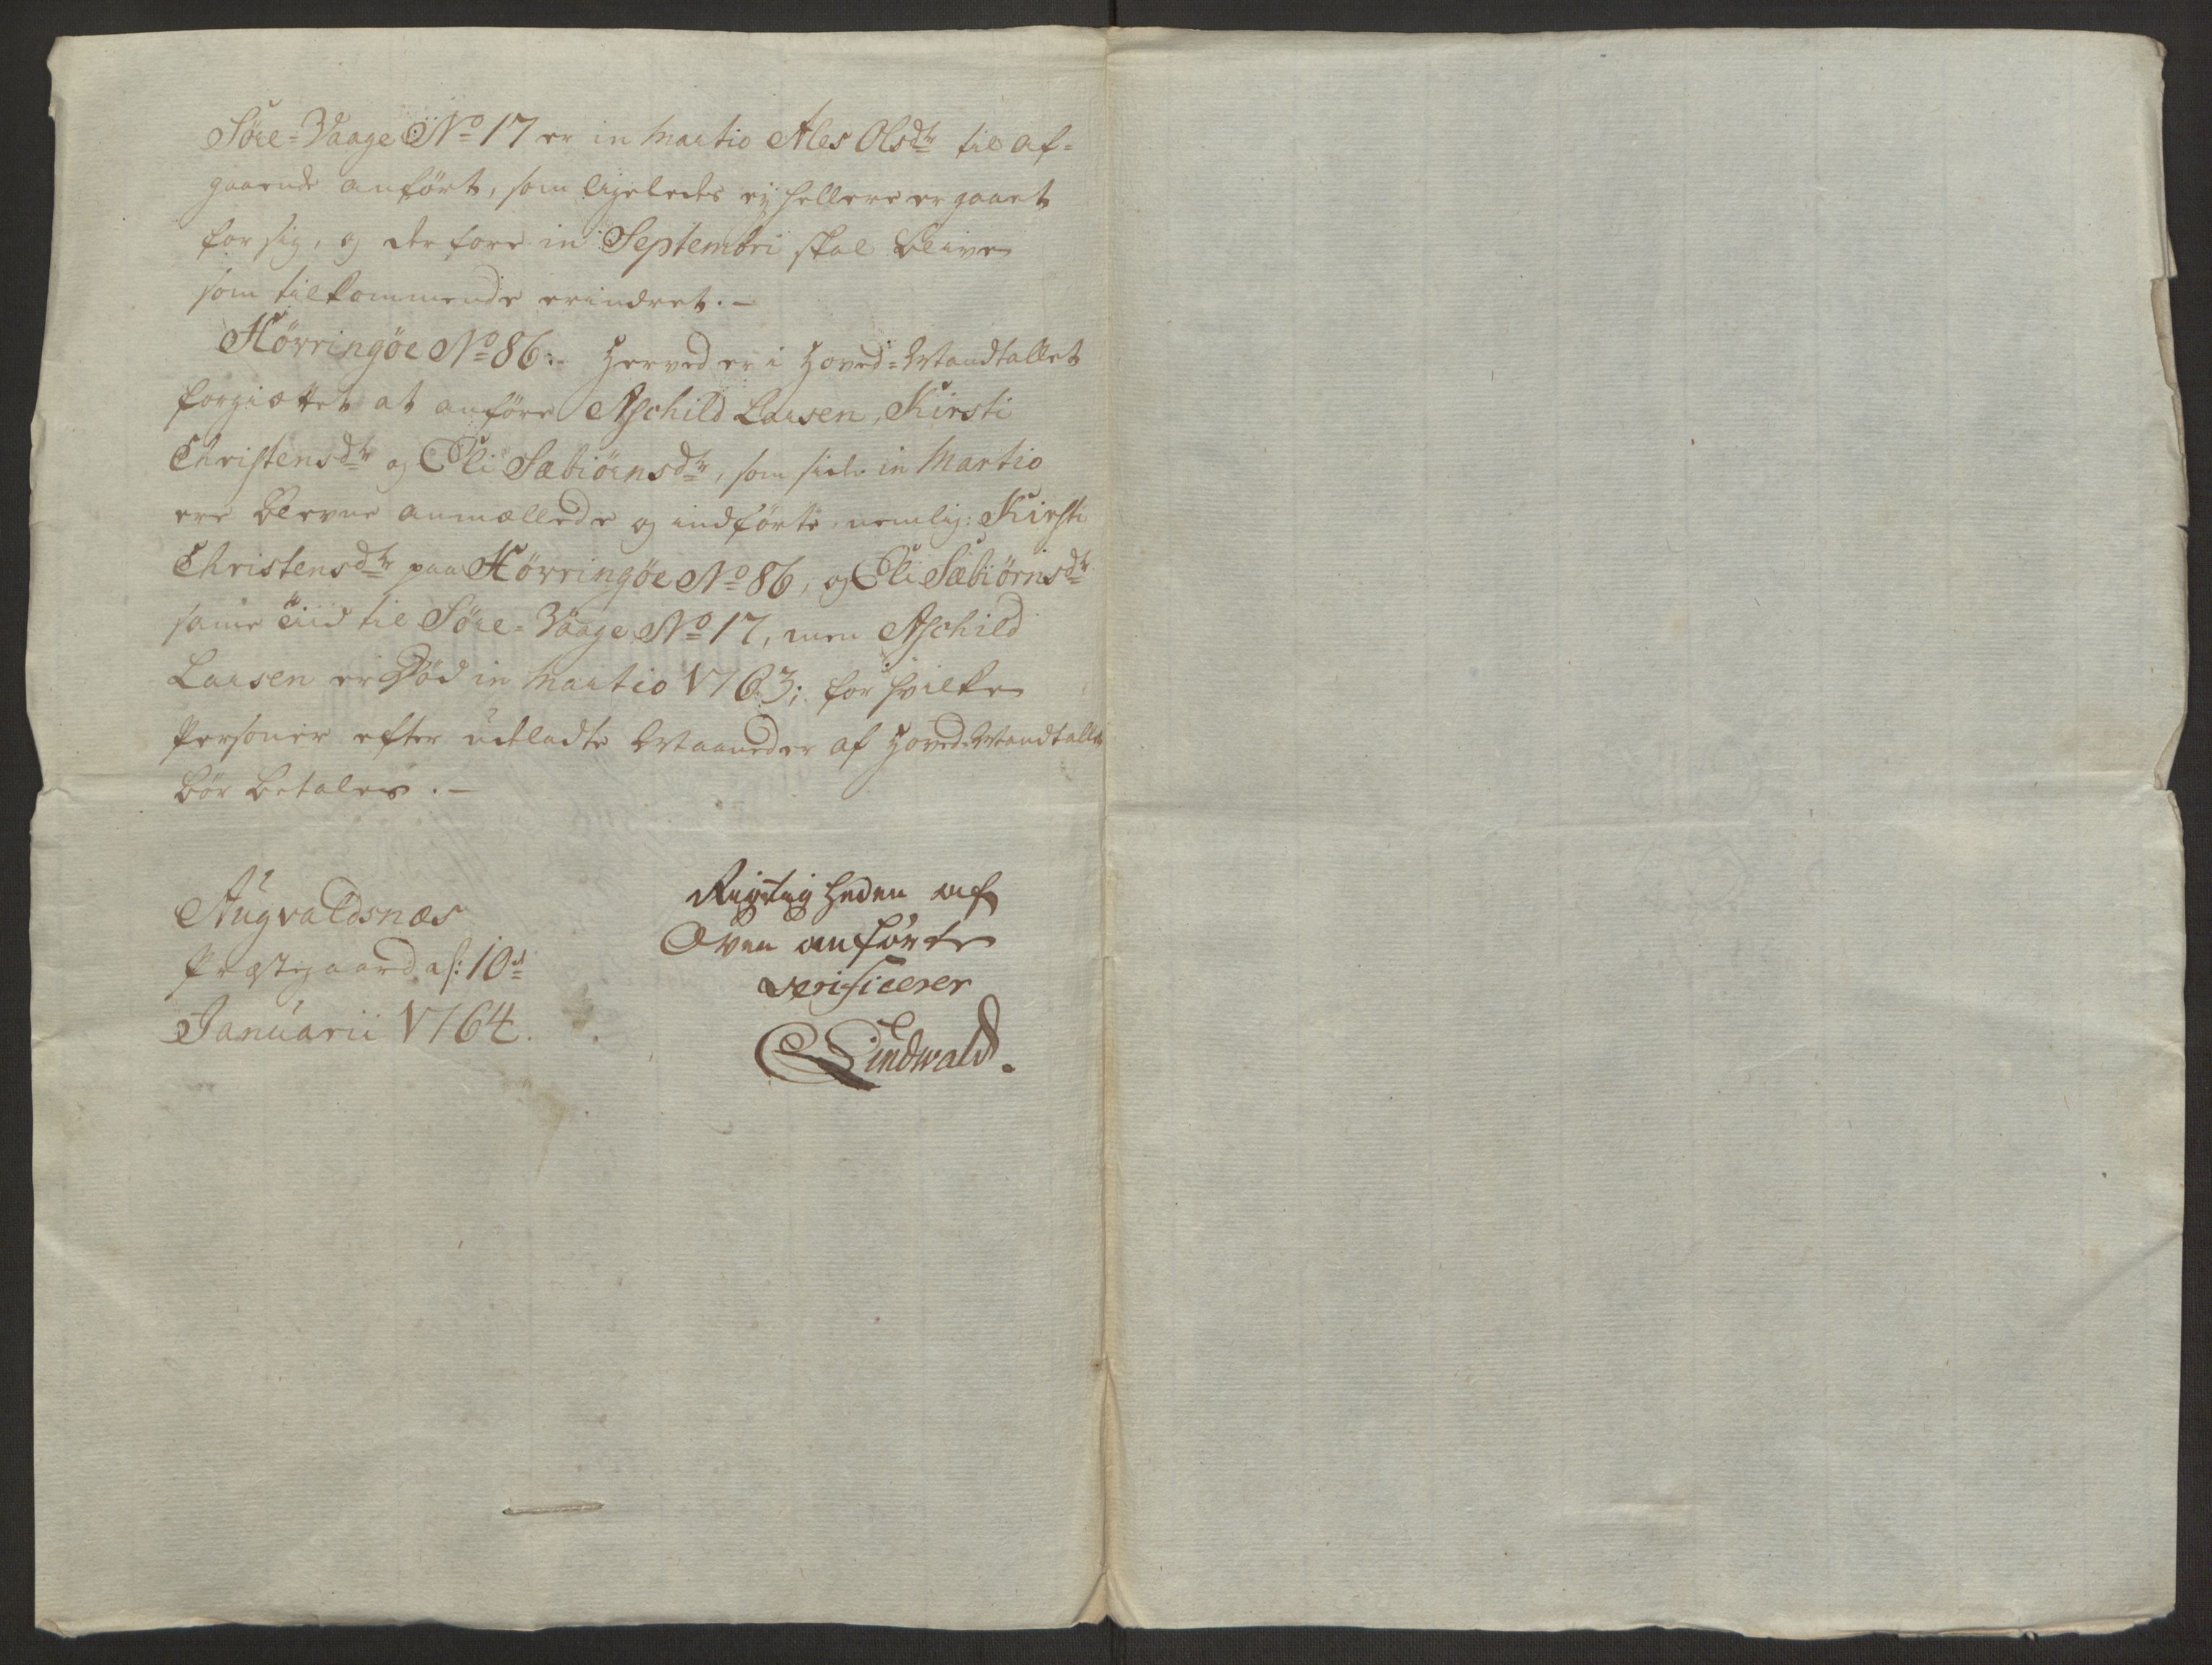 Söre-Vaage No 17 er in Martio Ales Olsdtr til af-
gaaende anført, som ligeledes ej hellere er gaaet
for sig, og derfore in Septembri skal blive
som tilkommende erindret. -
Hörringöe No 86:. Herved er i Hoved-Mandtallet
forgiættet at anføre Aschild Larsen, Kirsti
Christensdtr og Eli Sæbiörnsdtr, som siden in Martio
ere blevne anmældede og indførte, nemlig: Kirsti
Christensdtr paa Hörringöe No 86, og Eli Sæbiörnsdtr
samme tiid til Söre-Vaage No 17, men Aschild
Larsen er Död in Martio 1763; for hvilke
Personer efter udladte Maaneder af Hoved-Mandtallet
bör betales. -
Augvaldsnæs
Præstegaard d: 10de
Januarii 1764.
Rigtigheden af
Oven anförte
verificerer
C Lindwald.